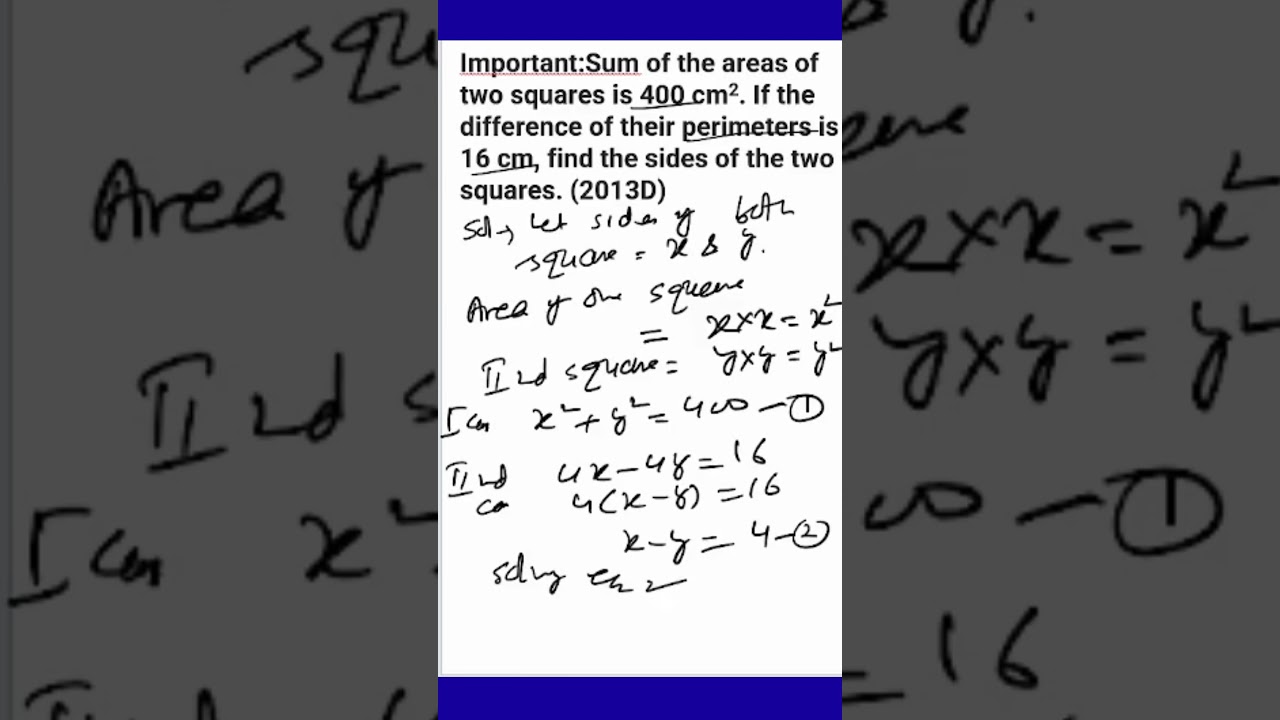 Important:Sum of the areas of
two squares is 400 cm². If the
difference of their perimeters is
16 cm, find the sides of the two
squares. (2013D)
Sol→ Let sides of both
square = x & y.
Area of one square
= x×x = x²
II nd square = y×y = y²
I con x² + y² = 400 —①
II nd 4x–4y = 16
con 4(x–y) = 16
x–y = 4 –②
solving eq 2